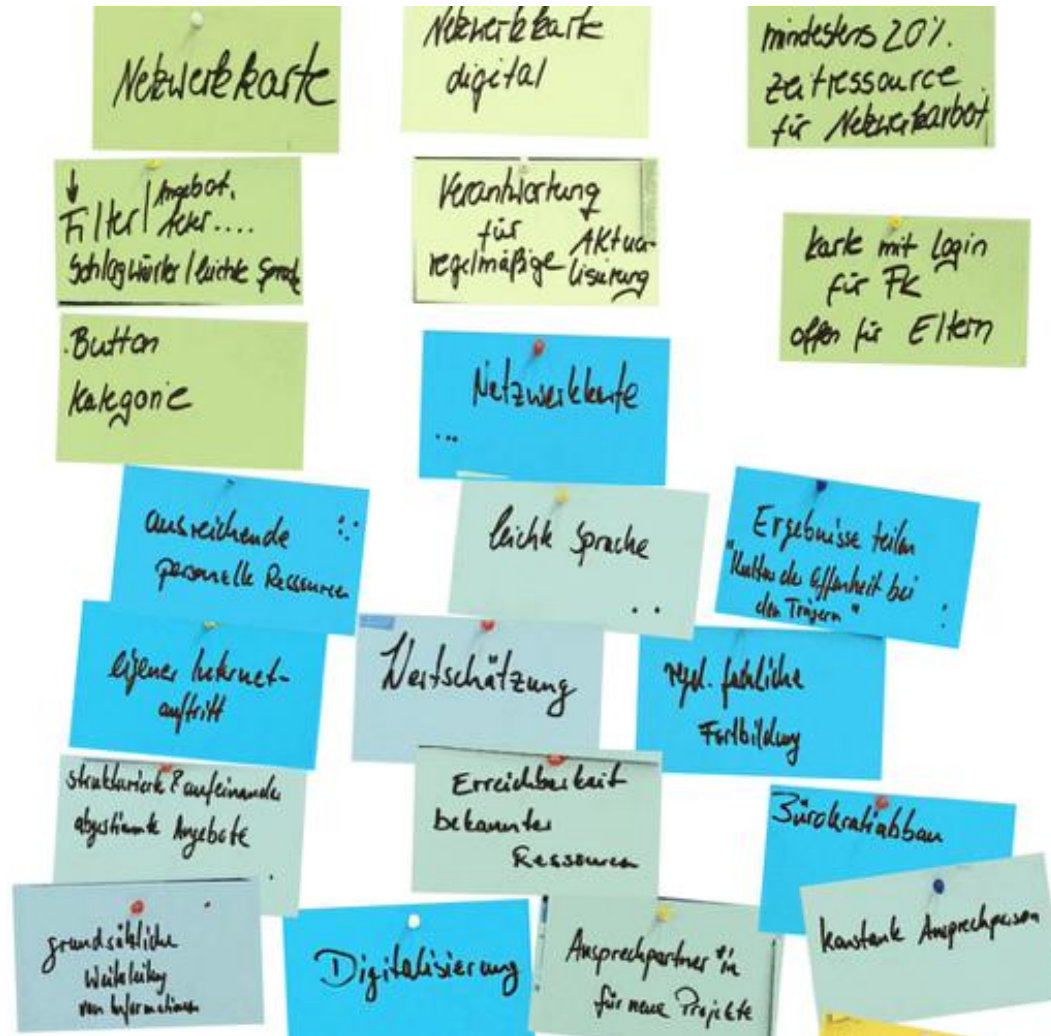 Netzwerkkarte
Netzwerkkarte
digital
mindestens 20%
zeitressource
für Netzwerkarbeit
↓
Filter | Angebot,
Alter....
Schlagwörter / leichte Sprache
Verantwortung
für
regelmäßige Aktua-
lisierung
karte mit Login
für FK
offen für Eltern
Button
Kategorie
Netzwerkkarte
...
ausreichende
personelle Ressourcen
leichte Sprache
Ergebnisse teilen
"Kultur der Offenheit bei
den Trägern"
eigener Internet-
auftritt
Wertschätzung
regel. fachliche
Fortbildung
strukturierte & aufeinander
abgestimmte Angebote
Erreichbarkeit
bekannter
Ressourcen
Bürokratieabbau
grundsätzliche
Weiterleitung
von Informationen
Digitalisierung
Ansprechpartner*in
für neue Projekte
konstante Ansprechperson